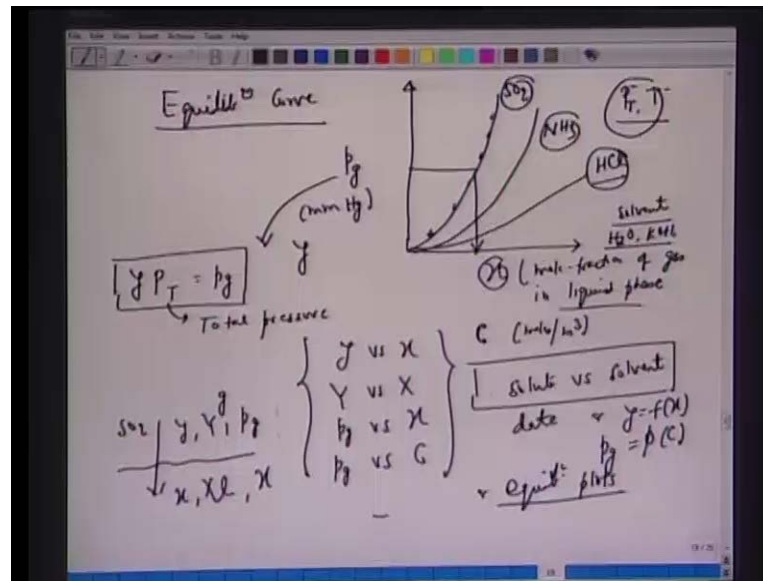 File Edit View Insert Actions Tools Help
Equilib^m Curve
SO2
NH3
HCl
P_T, T
p_g
(mm Hg)
y
y P_T = p_g
Total pressure
solvent
H2O,
x (mole-fraction of gas
in liquid phase
C (moles/m3)
y vs x
Y vs X
p_g vs x
p_g vs C
solute vs solvent
data or y = f(x)
p_g = φ(C)
or equib^m plots
SO2 y, Y, p_g
g
x, X, x
19 / 25